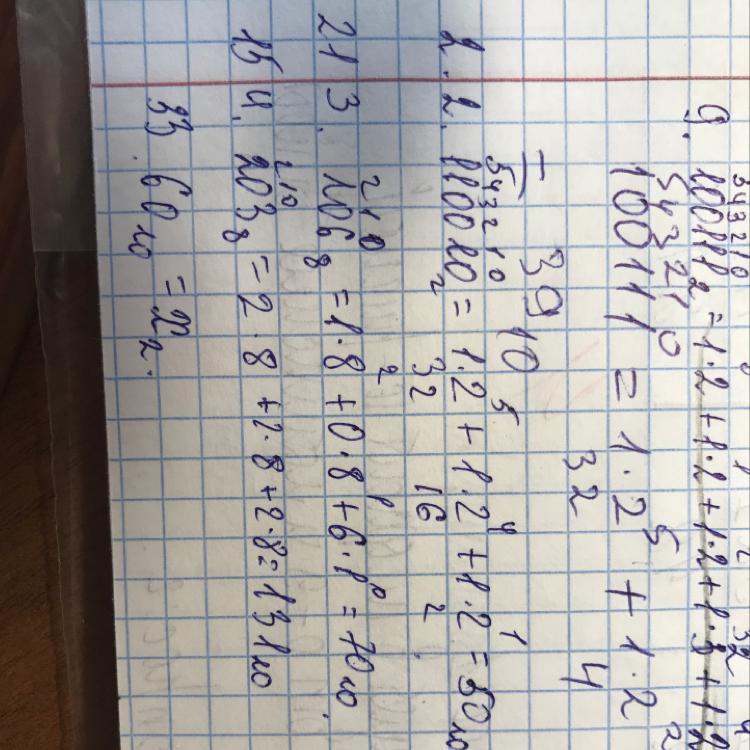 5 4 3 2 1 0
9. 100111₂ = 1·2 + 1·2 + 1·2 + 1·
5 4 3 2 1 0
100111 = 1·2⁵ + 1·2
32 4
= 39 10
5 4 3 2 1 0
2. 2. 110010₂ = 1·2⁵ + 1·2⁴ + 1·2¹ = 50₁₀
32 16 2
2 1 0
21 3. 106₈ = 1·8² + 0·8¹ + 6·1⁰ = 70₁₀
2 1 0
15 4. 203₈ = 2·8 + 2·8 + 2·8 = 131₁₀
33. 60₁₀ = X₂.